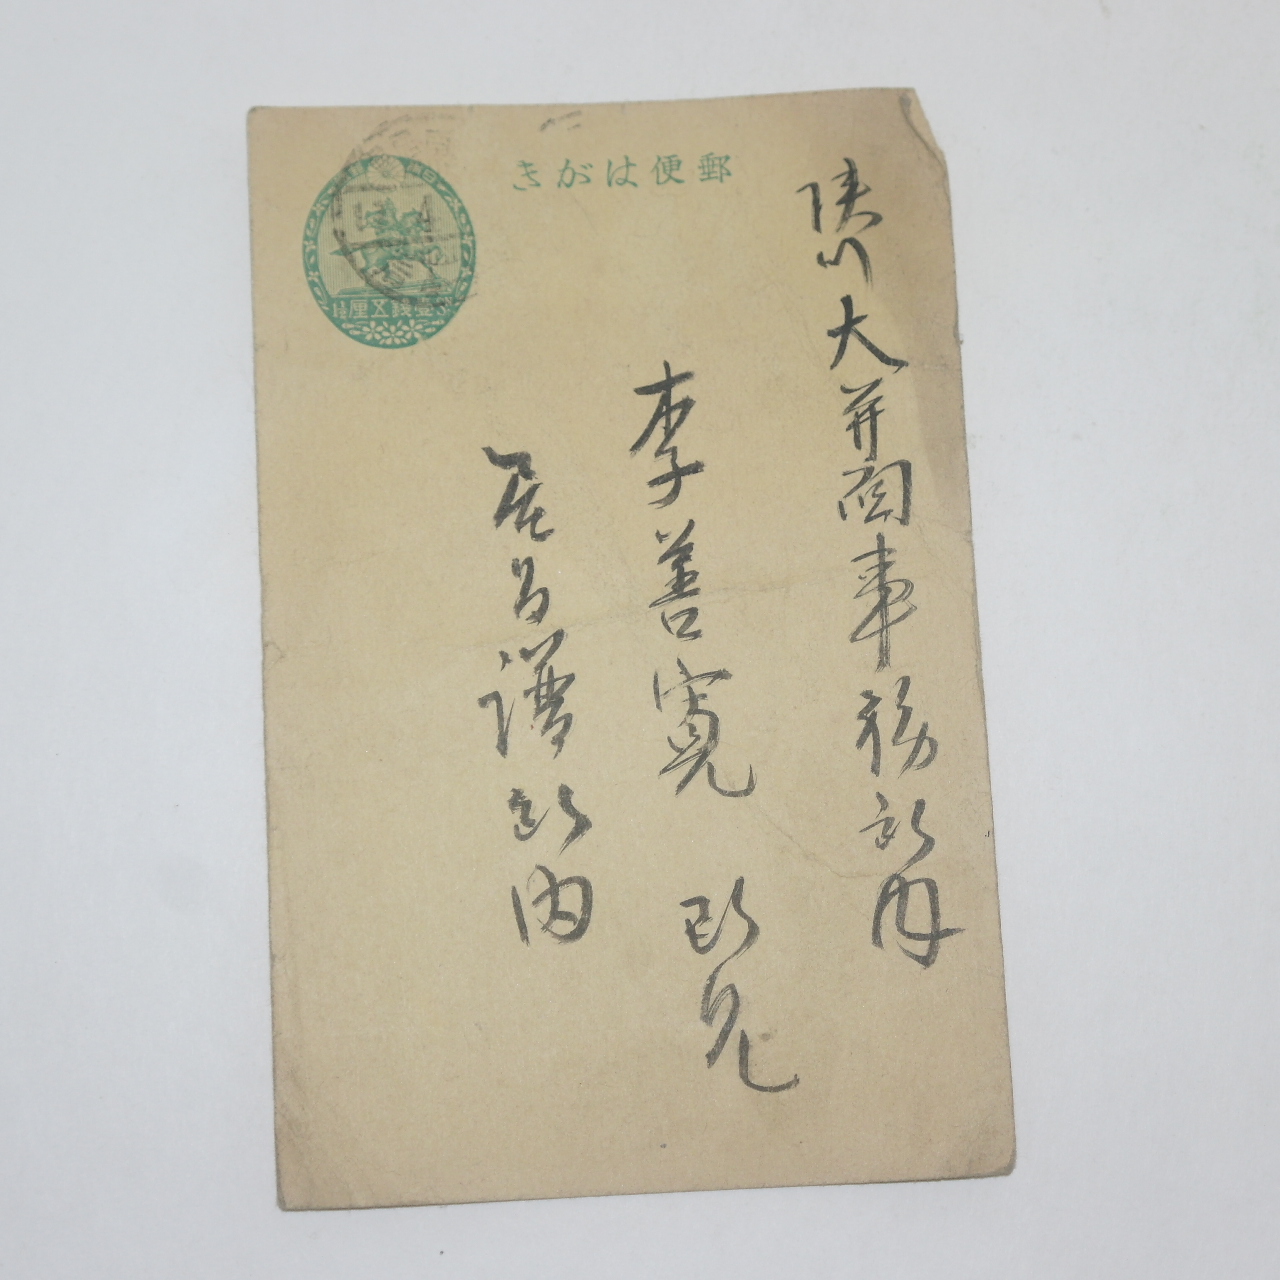 郵便はがき
陜川大幷面事務所内
李善寬 殿
居昌譜所内
壹錢五厘